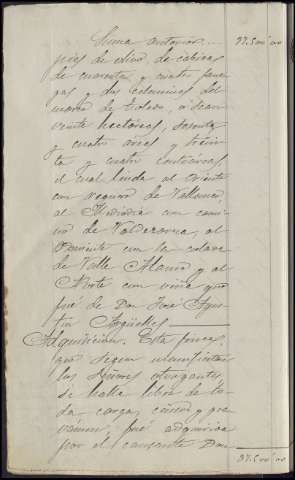 Suma anterior... 37.500 00
pies de olivo de cabida
de cuarenta y cuatro fane
gas y dos celemines del
marco de Toledo, o sean
veinte hectáreas, sesenta
y cuatro áreas y trein
ta y cuatro centiáreas
el cual linda al Oriente
con
al Mediodia con cami
no de Valderorma, al
Poniente con la
de Valle y al
Norte con viña que
fué de Don José Agus
tin Argüelles
Adquisicion. Esta finca,
que segun manifiestan
los Señores otorgantes,
se halla libre de to
da carga, censo y gra
vámen, fué adquirida
por el causante Don
37.500 00